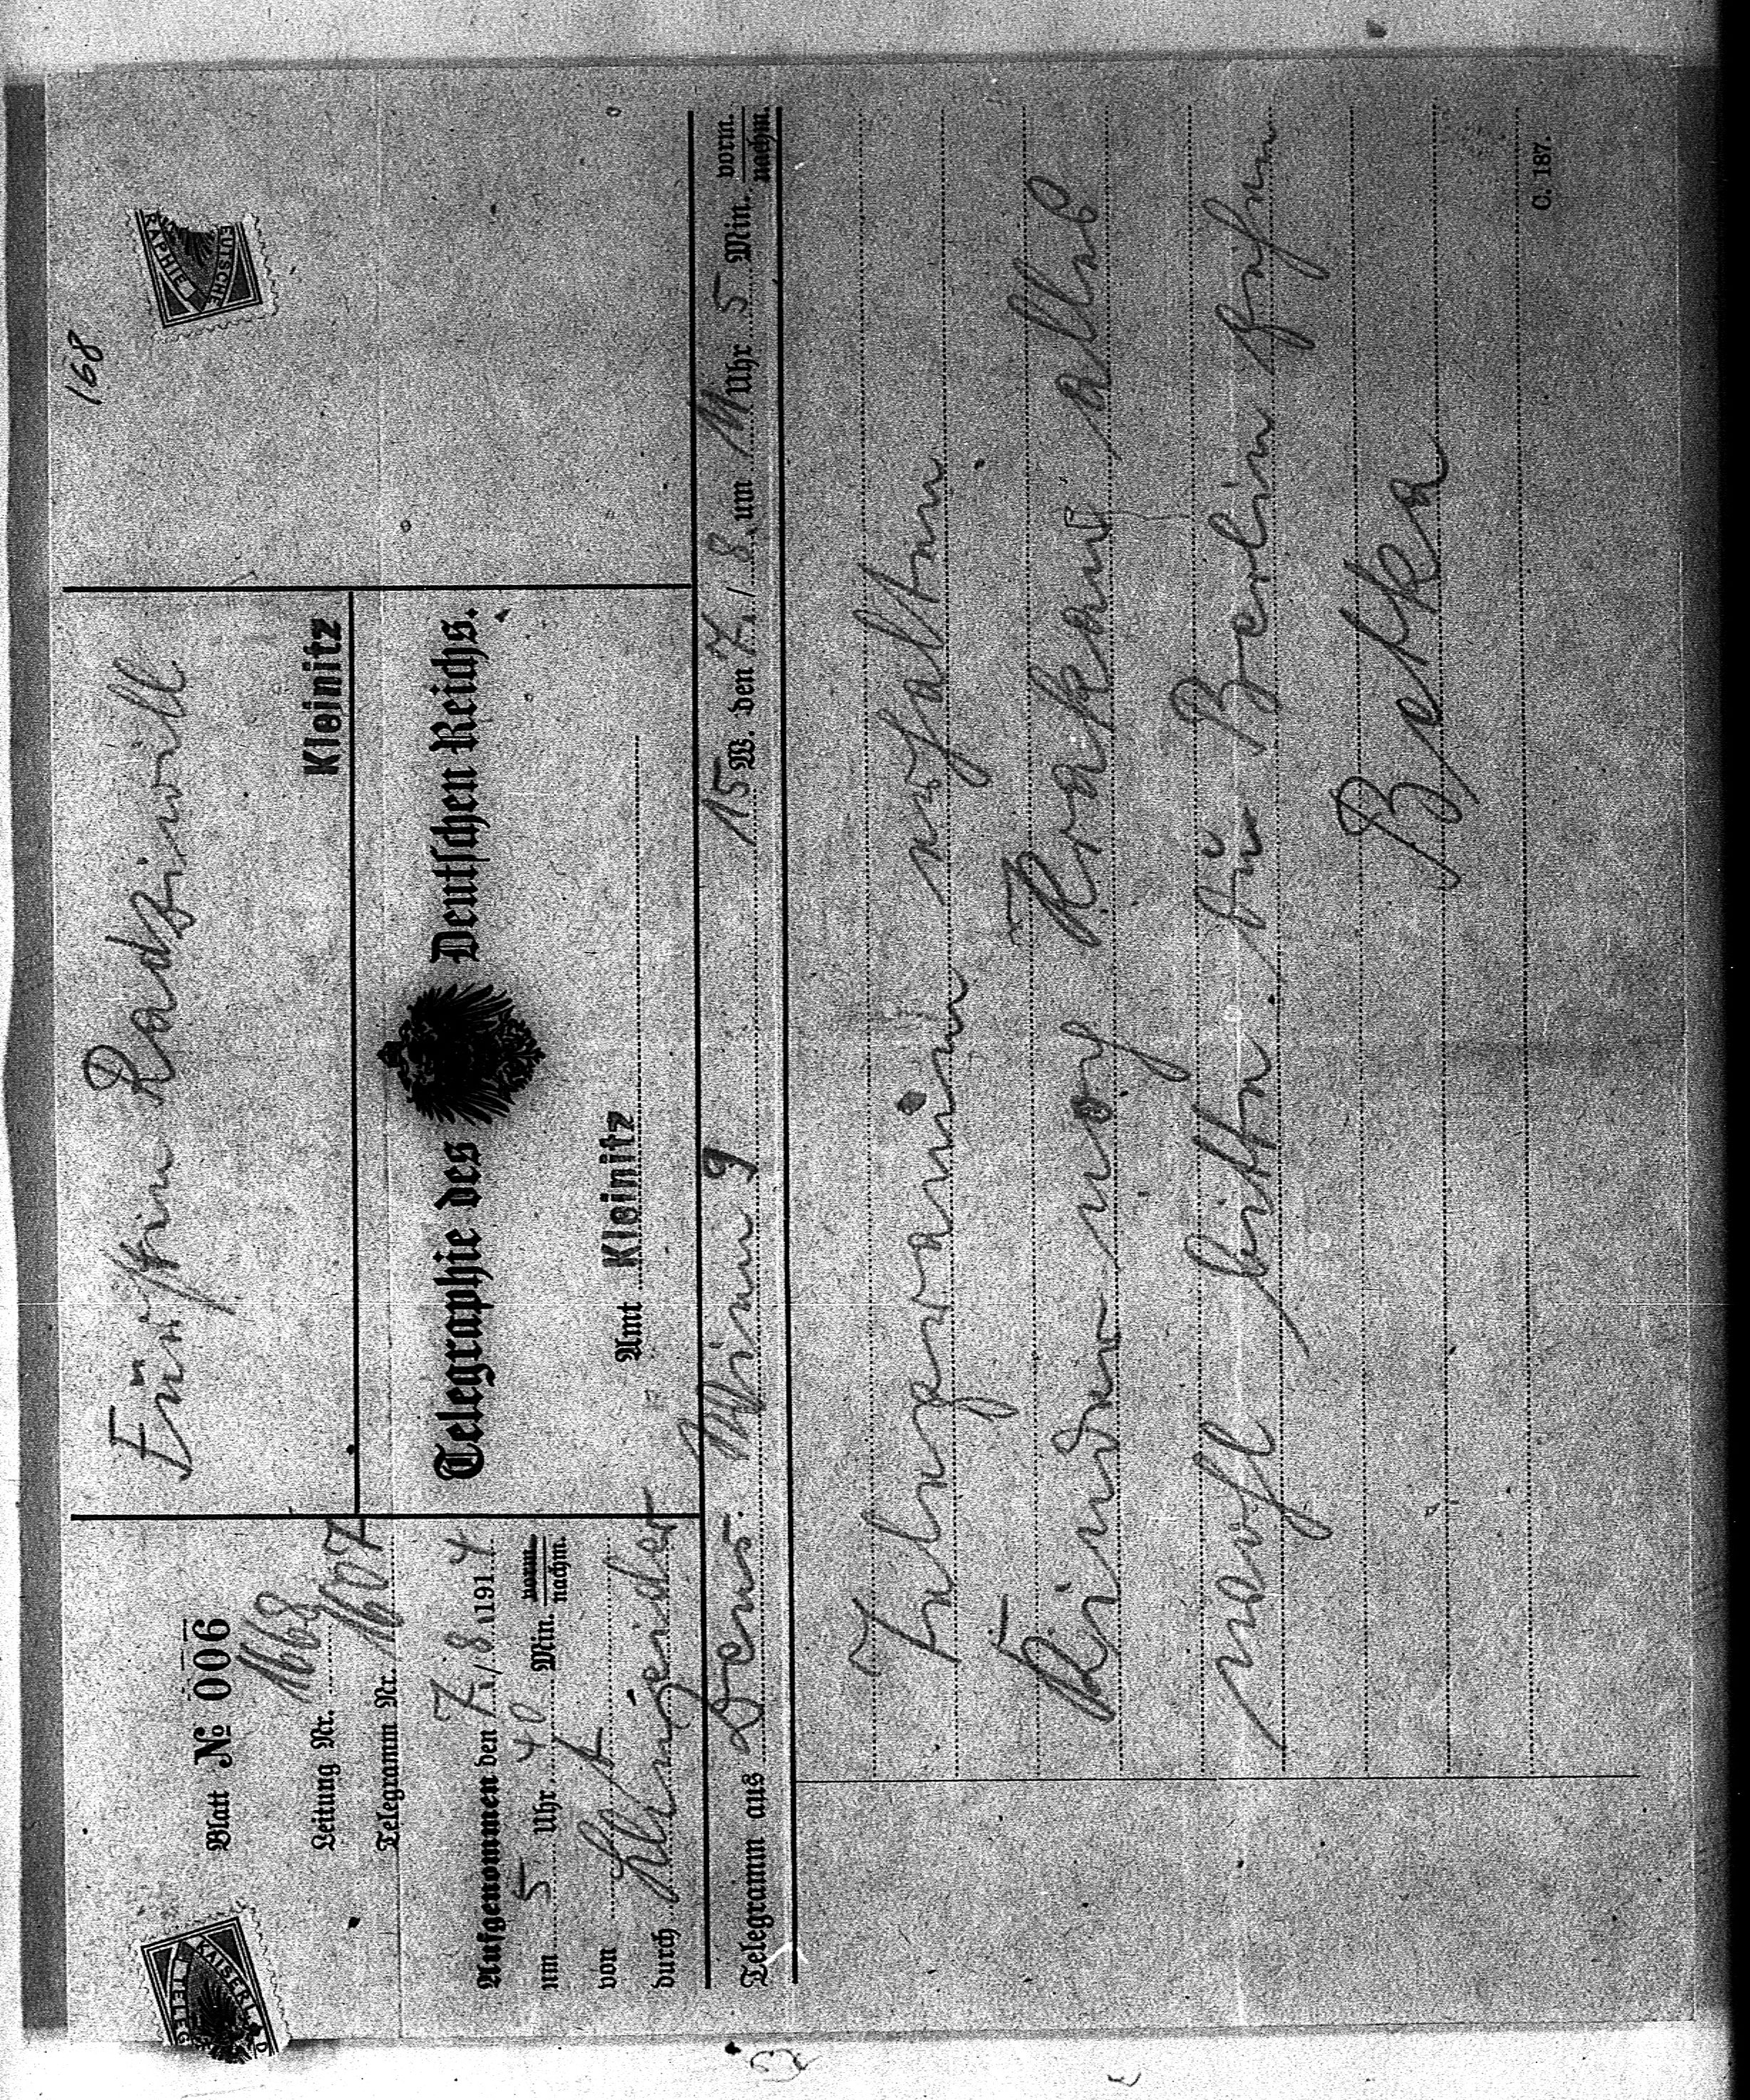 168
EUTSCHE
RAPHIE
KAISERL. D
TELEG
Blatt № 006
1668
Leitung Nr.
Telegramm Nr. 1607
Fürstin Radziwill
Kleinitz
Telegraphie des Deutschen Reichs.
Amt Kleinitz
Aufgenommen den 7./8. 1914
um 5 Uhr 40 Min. vorm. nachm.
von
durch
Telegramm aus Wien 9 15 W. den 7./8. um 11 Uhr 5 Min. vorm. nachm.
Telegramm erhalten
Kinder noch Krakau alles
wohl bitte für Berlin
Betka
C. 187.